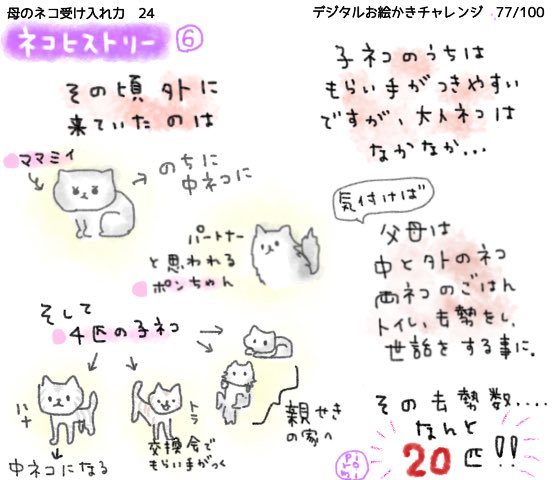 母のネコ受け入れ力 24
デジタルお絵かきチャレンジ 77/100
ネコヒストリー ⑥
その頃 外に
来ていたのは
ママミィ
のちに
中ネコに
パートナー
と思われる
ポンちゃん
そして
4匹の子ネコ
ハナ
中ネコになる
トラ
交換会で
もらい手がつく
親せき
の家へ
子ネコのうちは
もらい手がつきやすい
ですが、大人ネコは
なかなか...
気付けば
父母は
中と外のネコ
両ネコのごはん
トイレ、去勢をし、
世話をする事に。
その去勢数....
なんと
20匹!!